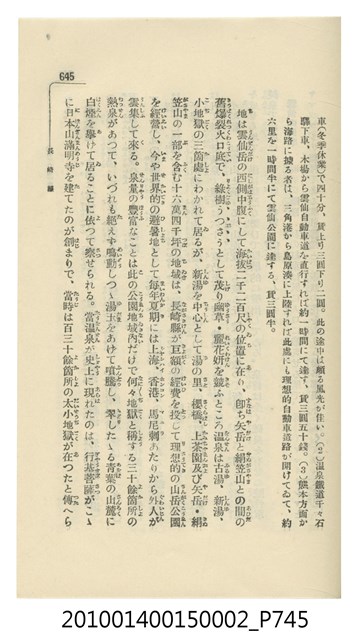 645
長崎線
車(冬季休業)で四十分、賃上り三圓下り二圓、此の途中は頗る風光が佳い。(2)溫泉鐵道千々石
驛下車、木場から雲仙自動車道を直行すれば約一時間にて達す、賃三圓五十錢。(3)熊本方面か
ら海路に據る者は、三角港から島原湊に上陸すれば此處にも理想的自動車道路が開けてゐて、約
六里を一時間半にて雲仙公園に達する、賃三圓半。
地は雲仙岳の西側中腹にして海拔二千二百尺の位置に在り、卽ち矢岳と絹笠山との間の
舊爆裂火口底で、綠樹うつさうとして茂り幽草・麗花妍を競ふところ溫泉は古湯、新湯、
小地獄の三箇處にわかれて居るが、新湯を中心として湯の里、櫻橋、上茶園及び矢岳、絹
笠山の一部を含む十六萬四千坪の地域は、長崎縣が巨額の經費を投じて理想的の山岳公園
を經營し、今や世界的の避暑地として每年夏期には上海、香港、馬尼剌あたりから外人が
雲集して來る。泉量の豐富なことは此の公園地域內だけで何々地獄と稱する三十餘箇所の
熱泉があつて、いづれも絕えず鳴動しつゝ湯玉をあげて噴騰し、翠したゝる靑葉の山麓に
白煙を擧げて居ることに依つて察せられる。當溫泉が史上に現れたのは、行基菩薩がこゝ
に日本山滿明寺を建てたのが創まりで、當時は百三十餘箇所の大小地獄が在つたと傳へら
201001400150002_P745